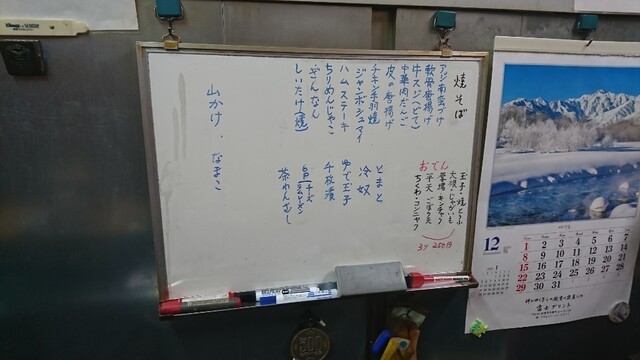 焼そば
アジ南蛮づけ
軟骨唐揚げ
牛スジ(どて)
中華肉だんご
皮の唐揚げ
チキン手羽焼
ジャンボシュウマイ
ハムステーキ
ちりめんじゃこ
ぎんなん
しいたけ(焼)
おでん
玉子・焼とうふ
大根・じゃがいも
厚揚・キンチャク
平天・ごぼう天
ちくわ・コンニャク
3ケ 250円
とまと
冷奴
ゆで玉子
千枚漬
チーズ
茶わんむし
山かけ・なまこ
12
1 2 3 4 5 6 7
8 9 10 11 12 13 14
15 16 17 18 19 20 21
22 23 24 25 26 27 28
29 30 31
富士プリント
500